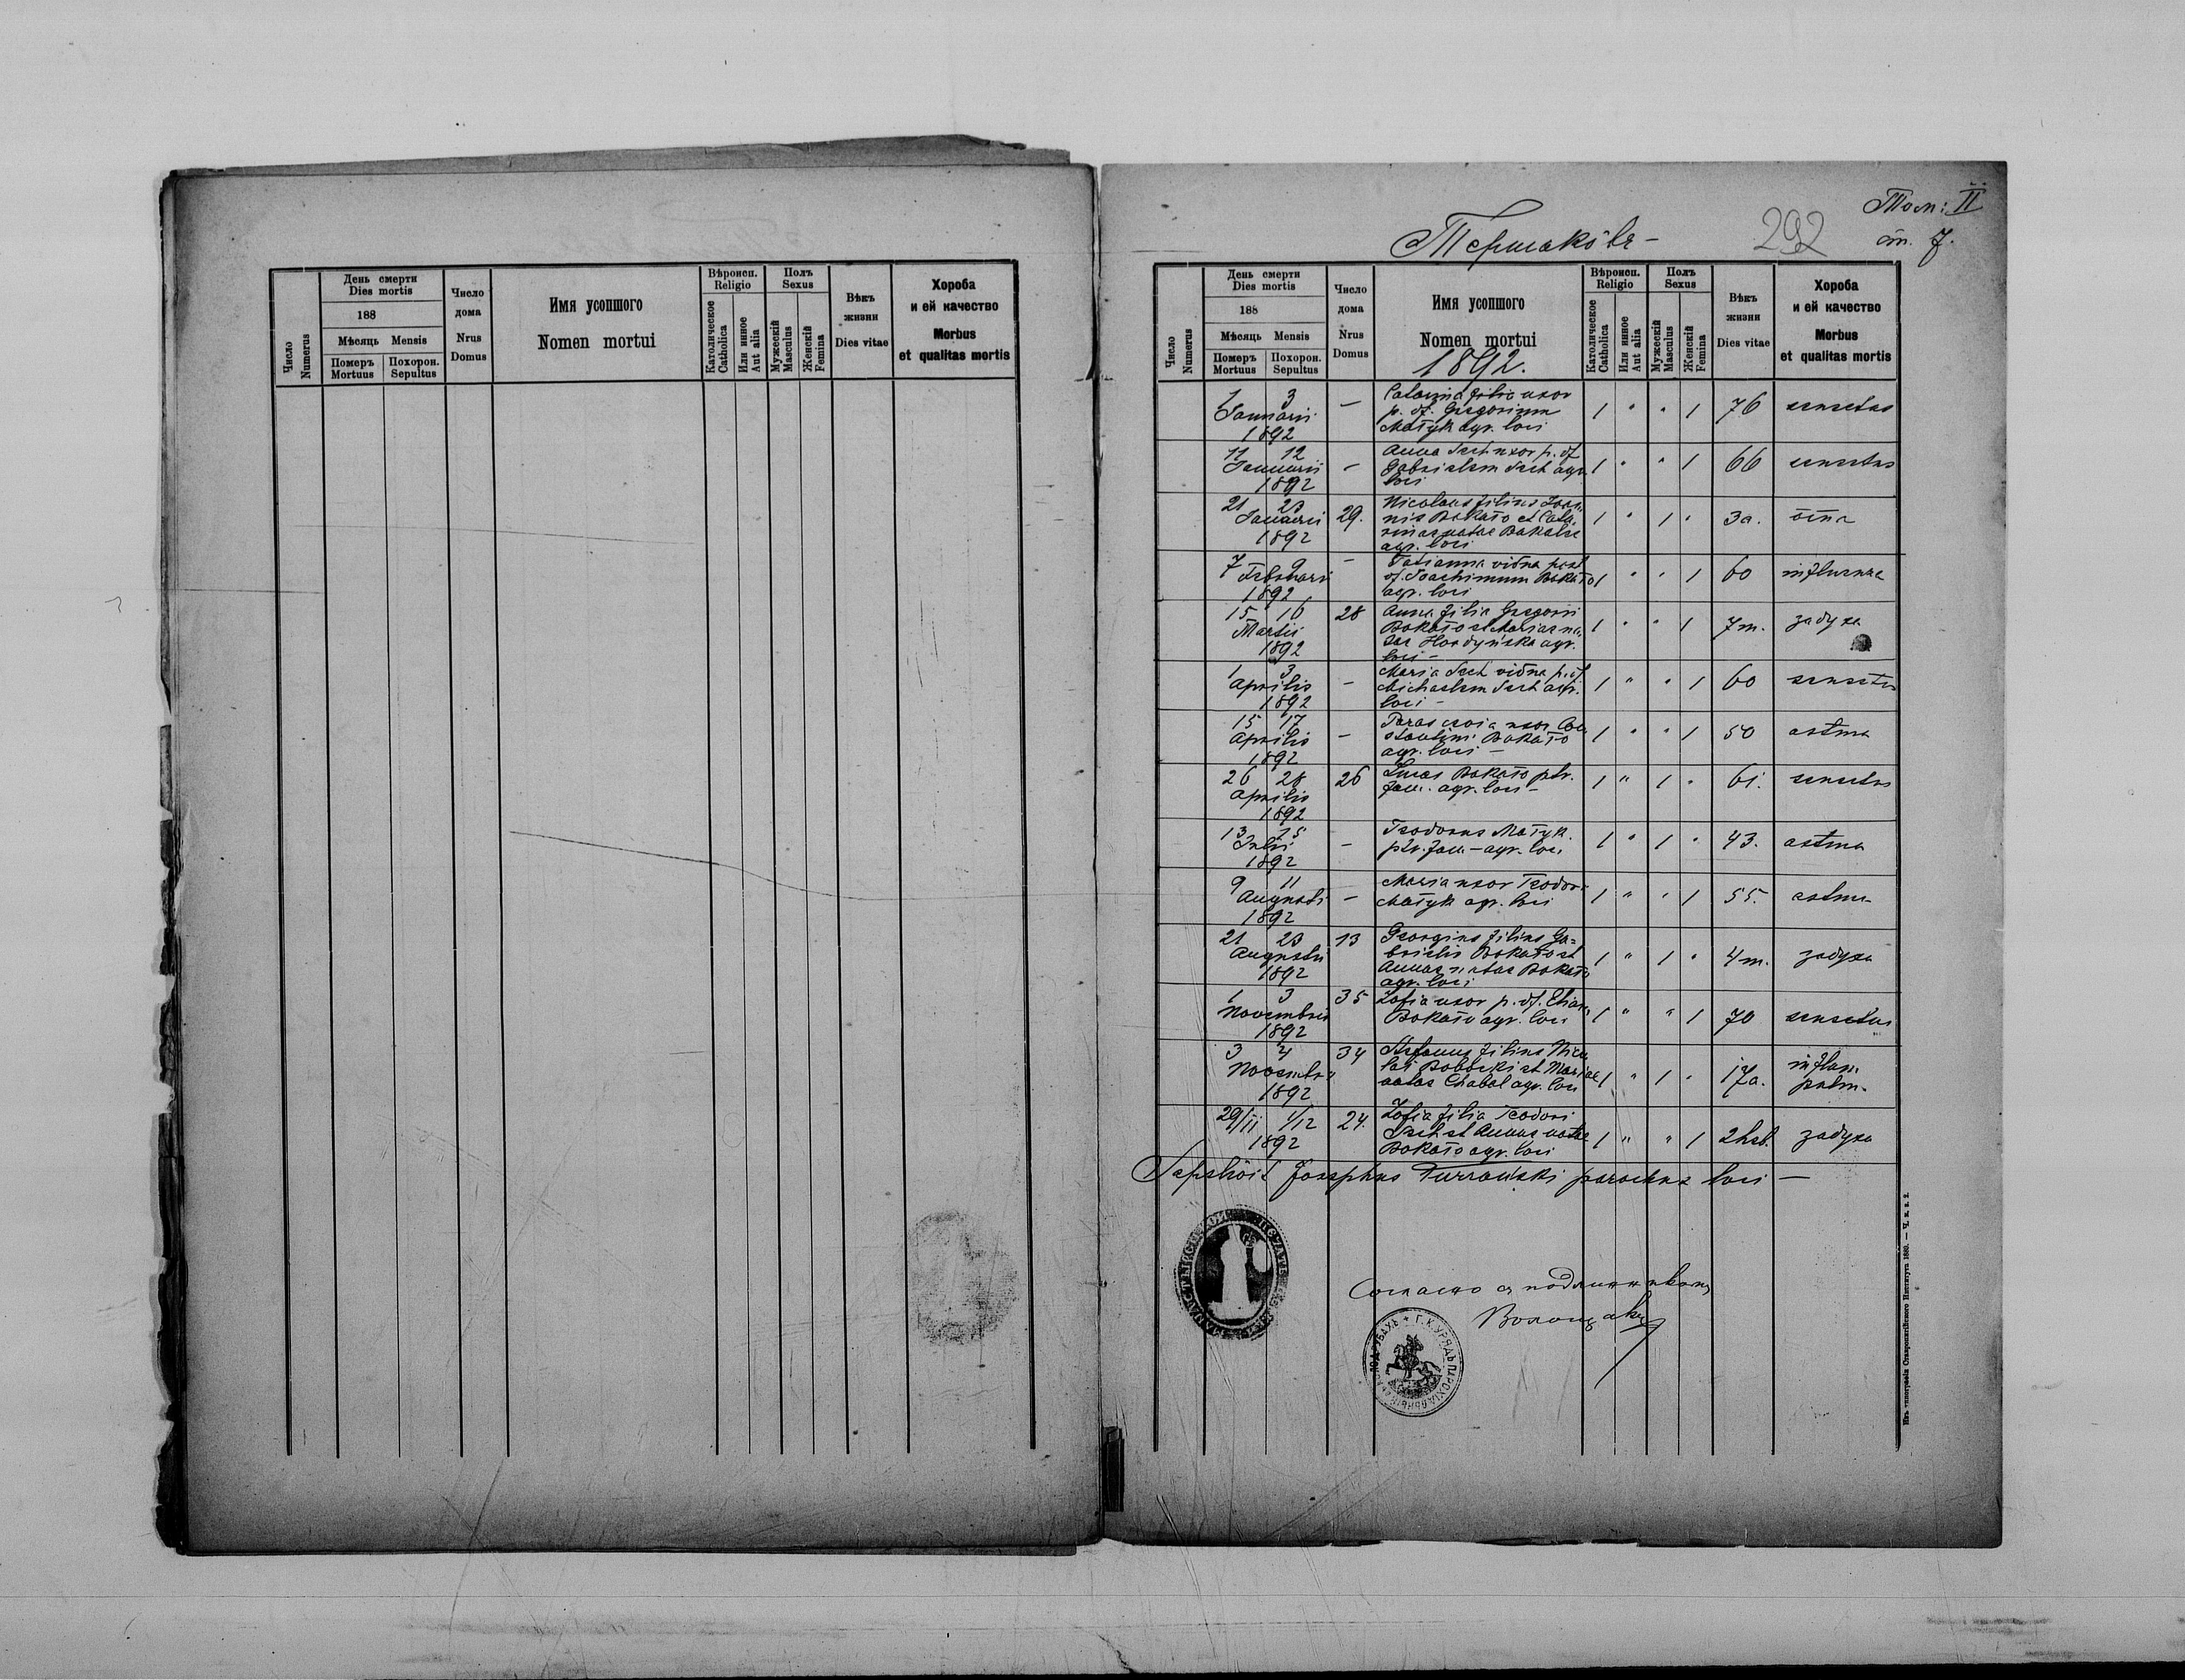 Число
Numerus
День смерти
Dies mortis
188
Мѣсяць Mensis
Померъ
Mortuus
Похорон.
Sepultus
Число
дома
Nrus
Domus
Имя усопшого
Nomen mortui
Вѣроисп.
Religio
Католическое
Catholica
Или инное
Aut alia
Полъ
Sexus
Мужескій
Masculus
Женскій
Femina
Вѣкъ
жизни
Dies vitae
Хороба
и ей качество
Morbus
et qualitas mortis
Том: II
ст. 7.
292
Число
Numerus
День смерти
Dies mortis
188
Мѣсяць Mensis
Померъ
Mortuus
Похорон.
Sepultus
Число
дома
Nrus
Domus
Имя усопшого
Nomen mortui
1892.
Вѣроисп.
Religio
Католическое
Catholica
Или инное
Aut alia
Полъ
Sexus
Мужескій
Masculus
Женскій
Femina
Вѣкъ
жизни
Dies vitae
Хороба
и ей качество
Morbus
et qualitas mortis
1 3
Januarii
1892
— filia uxor
p. df. Gregorium
Matyk agr. loci
1 " " 1 76 senectus
11 12
Januarii
1892
— Anna uxor p. df
Gabrielem agr.
loci
1 " " 1 66 senectus
21 23
Januarii
1892
29. Nicolaus filius Joan
nis Bokało et Cata
rinae natae
agr. loci
1 " 1 " 3a.
7 9
Februarii
1892
— Tatianna vidua post
df. Joachimum Bokało
agr. loci
1 " " 1 60 influenza
15 16
Martii
1892
28 Anna filia Gregorii
Bokało et Mariae na
tae Horodyńska agr.
loci —
1 " " 1 7m. задуха
1 3
Aprilis
1892
— Maria vidua p. df
Michaelem agr.
loci —
1 " " 1 60 senectus
15 17
Aprilis
1892
— Parascevia uxor Con
stantini Bokało
agr. loci —
1 " " 1 50 astma
26 28
Aprilis
1892
26 Lucas Bokało ptr.
fam. agr. loci —
1 " 1 " 61. senectus
13 15
Julii
1892
— Teodorus Matyk
ptr. fam — agr. loci
1 " 1 " 43. astma
9 11
Augusti
1892
— Maria uxor Teodori
Matyk agr. loci
1 " " 1 55. astma
21 23
Augusti
1892
13 Georgius filius Ga=
brielis Bokało et
Annae natae Bokało
agr. loci
1 " 1 " 4m. задуха
1 3
Novembris
1892
35 Zofia uxor p. df. Eliam
Bokało agr. loci
1 " " 1 70 senectus
3 4
Novembris
1892
34 Stefanus filius Nico
lai et Mariae
natae Chabal agr. loci
1 " 1 " 17a. inflam.
pulm.
29/11 1/12
1892
24. Zofia filia Teodori
et Annae natae
Bokało agr. loci
1 " " 1 2 heb. задуха
Josephus parochus loci —
Согласно съ подлинникомъ
Г. К. УРЯДЪ ПАРОХІАЛЬНЫЙ
Изъ типографіи Ставропигійского Института 1880. — Ч. к. з. 2.